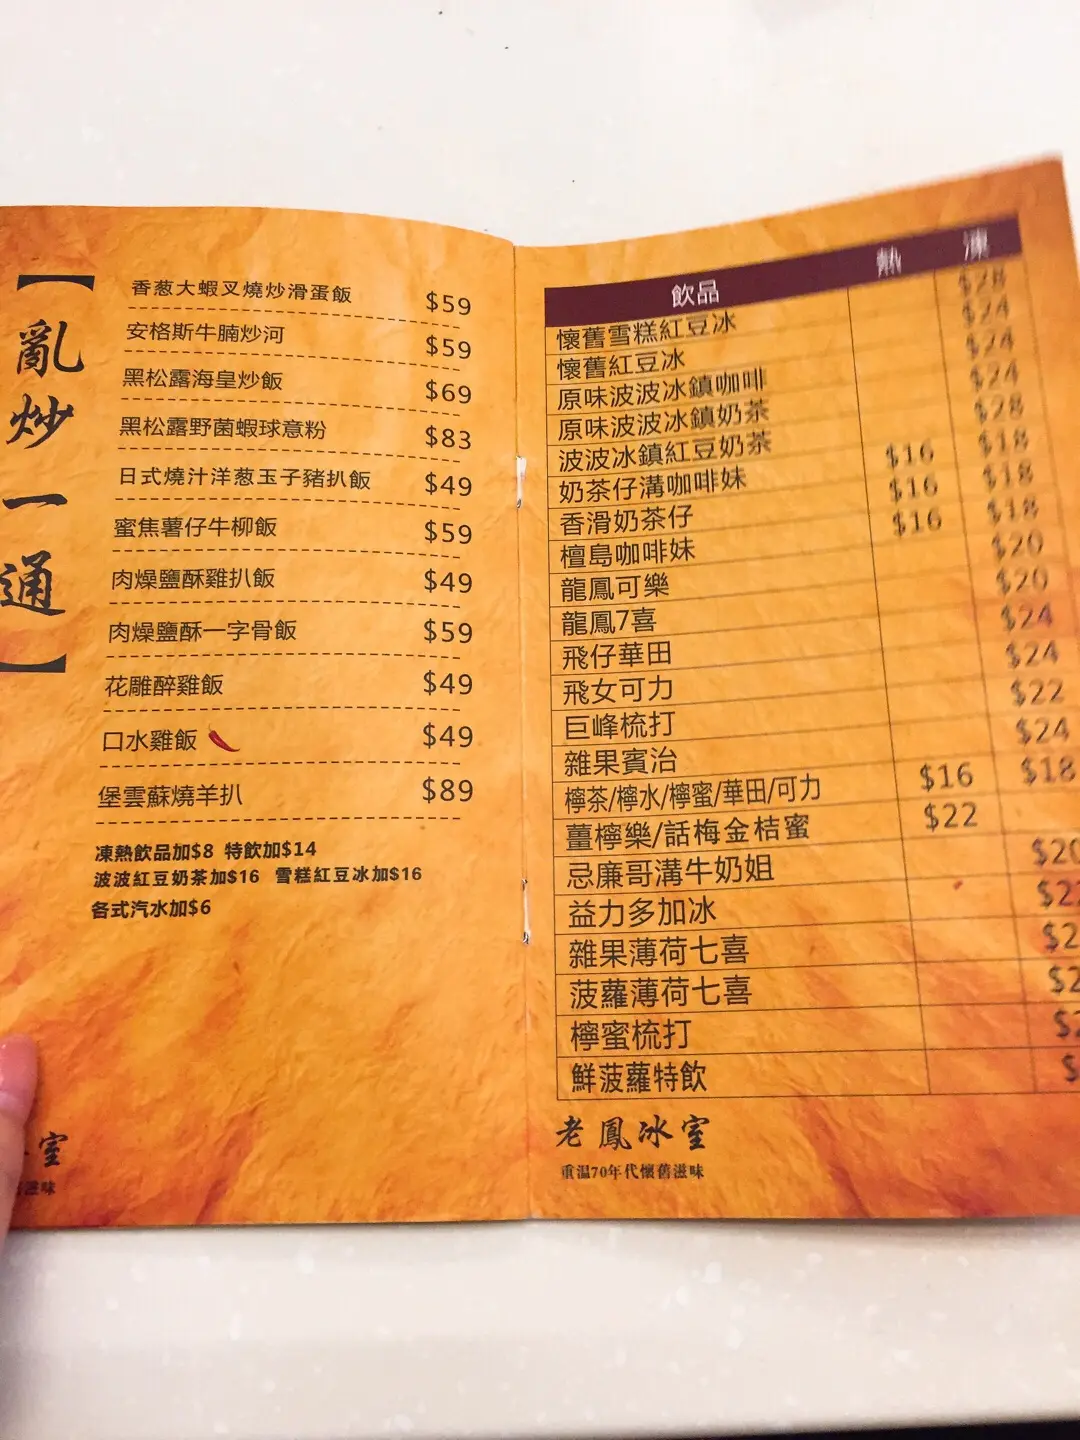 【亂炒一通】
香葱大蝦叉燒炒滑蛋飯 $59
安格斯牛腩炒河 $59
黑松露海皇炒飯 $69
黑松露野菌蝦球意粉 $83
日式燒汁洋葱玉子豬扒飯 $49
蜜焦薯仔牛柳飯 $59
肉燥鹽酥雞扒飯 $49
肉燥鹽酥一字骨飯 $59
花雕醉雞飯 $49
口水雞飯 $49
堡雲蘇燒羊扒 $89
凍熱飲品加$8 特飲加$14
波波紅豆奶茶加$16 雪糕紅豆冰加$16
各式汽水加$6
室
滋味
飲品 熱 凍
懷舊雪糕紅豆冰 $28
懷舊紅豆冰 $24
原味波波冰鎮咖啡 $24
原味波波冰鎮奶茶 $24
波波冰鎮紅豆奶茶 $28
奶茶仔溝咖啡妹 $16 $18
香滑奶茶仔 $16 $18
檀島咖啡妹 $16 $18
龍鳳可樂 $20
龍鳳7喜 $20
飛仔華田 $24
飛女可力 $24
巨峰梳打 $22
雜果賓治 $24
檸茶/檸水/檸蜜/華田/可力 $16 $18
薑檸樂/話梅金桔蜜 $22
忌廉哥溝牛奶姐 $20
益力多加冰
雜果薄荷七喜
菠蘿薄荷七喜
檸蜜梳打
鮮菠蘿特飲
老鳳冰室
重温70年代懷舊滋味